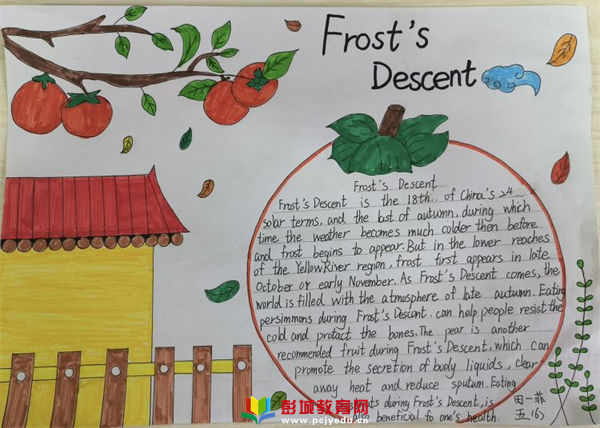 Frost's
Descent
Frost's Descent
Frost's Descent is the 18th of China's 24
solar terms, and the last of autumn, during which
time the weather becomes much colder then before
and frost begins to appear. But in the lower reaches
of the Yellow River region, frost first appears in late
October or early November. As Frost's Descent comes, the
world is filled with the atmosphere of late autumn. Eating
persimmons during Frost's Descant, can help people resist the
cold and protact the bones. The pear is another
recommended fruit during Frost's Descent, which can
promote the secretion of body liquids, clear
away heat and reduce sputum. Eating
during Frost's Descent, is
also beneficial to one's health.
田一菲
五(6)
彭城教育网
www.pcjyedu.cn